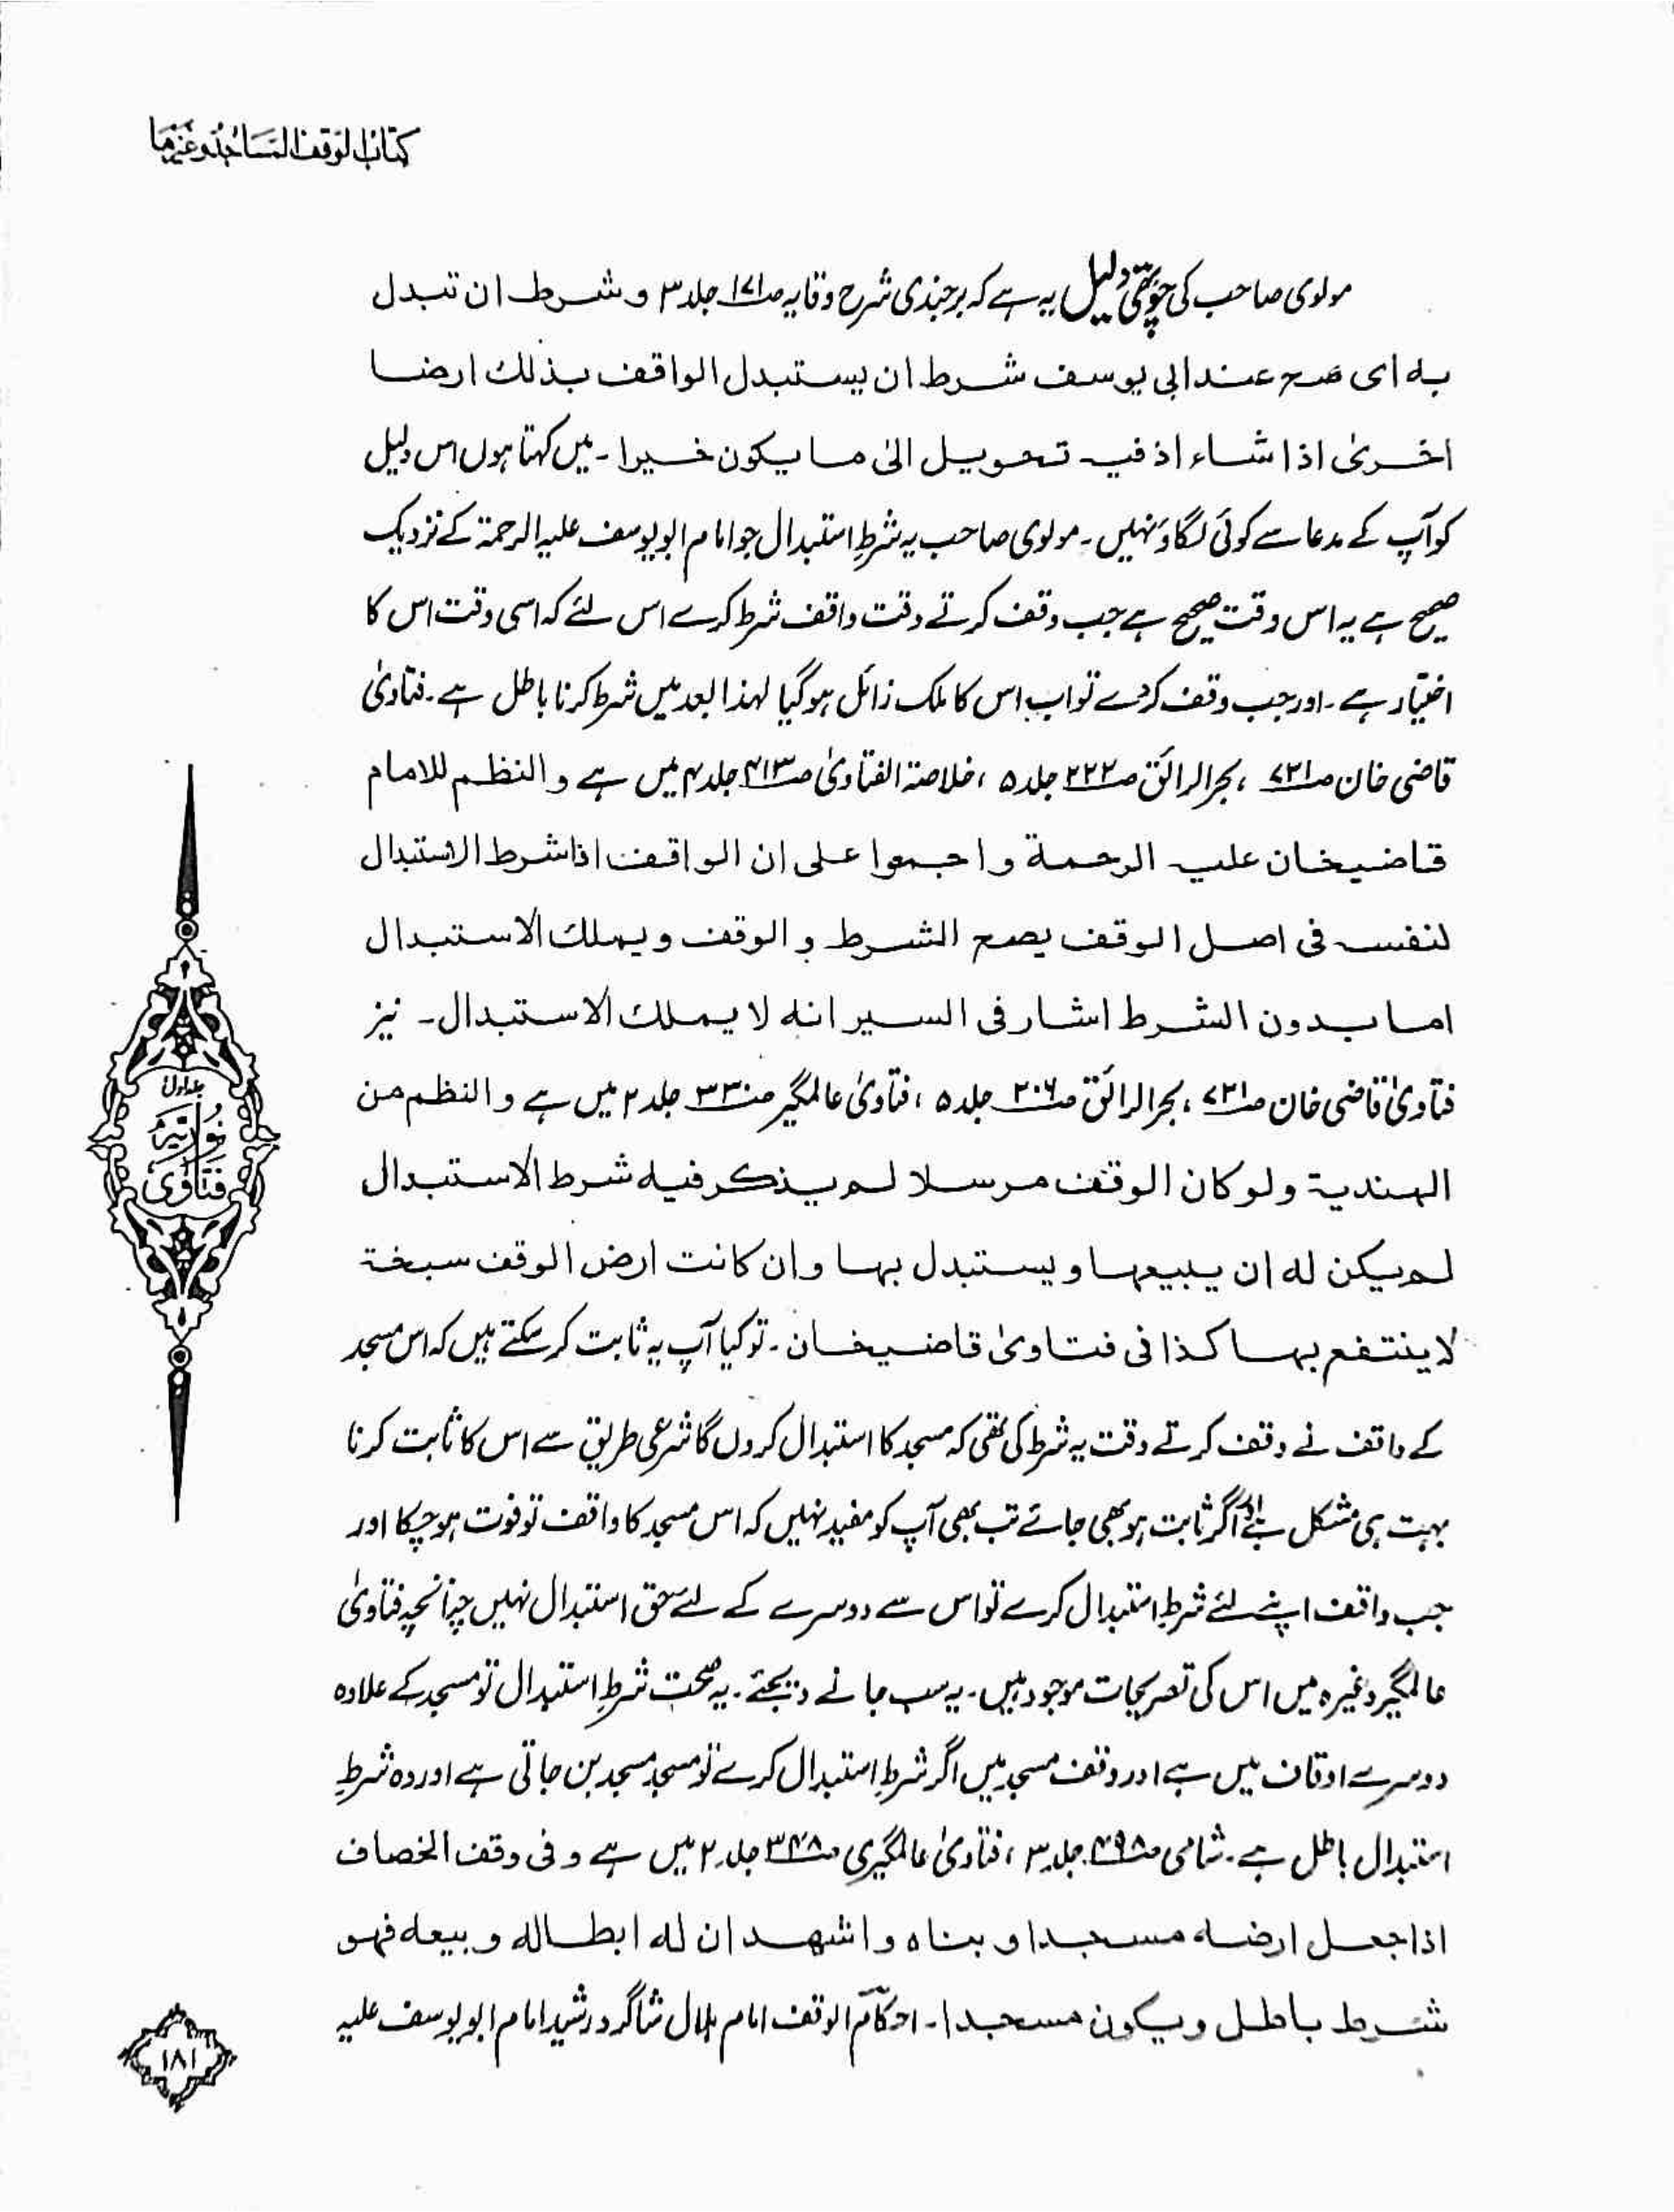 کتاب الوقف المساجد وغیرہا
مولوی صاحب کی چوتھی دلیل یہ ہے کہ برجندی شرح وقایہ صـ۱۷۱ جلد ۳ و شرط ان تبدل
بہ ای صح عند ابی یوسف شرط ان یستبدل الواقف بذلك ارضا
اخریٰ اذا شاء اذ فیہ تحویل الیٰ ما یکون خیرا۔ میں کہتا ہوں اس دلیل
کو آپ کے مدعا سے کوئی لگاؤ نہیں۔ مولوی صاحب یہ شرطِ استبدال جو امام ابو یوسف علیہ الرحمۃ کے نزدیک
صحیح ہے یہ اس وقت صحیح ہے جب وقف کرتے وقت واقف شرط کرے اس لئے کہ اسی وقت اس کا
اختیار ہے۔ اور جب وقف کردے تو اب اس کا ملک زائل ہوگیا لہذا بعد میں شرط کرنا باطل ہے۔ فتاویٰ
قاضی خان صـ۷۲۱، بحر الرائق صـ۲۲۲ جلد ۵، خلاصۃ الفتاویٰ صـ۴۱۳ جلد ۴ میں ہے والنظم للامام
قاضیخان علیہ الرحمۃ واجمعوا علی ان الواقف اذا شرط الاستبدال
لنفسہ فی اصل الوقف یصح الشرط والوقف ویملك الاستبدال
اما بدون الشرط اشار فی السیر انہ لا یملك الاستبدال۔ نیز
فتاویٰ قاضی خان صـ۷۲۱، بحر الرائق صـ۲۰۶ جلد ۵، فتاویٰ عالمگیر صـ۳۳۰ جلد ۲ میں ہے والنظم من
الہندیۃ ولو کان الوقف مرسلا لم یذکر فیہ شرط الاستبدال
لم یکن لہ ان یبیعہا ویستبدل بہا وان کانت ارض الوقف سبخۃ
لا ینتفع بہا کذا فی فتاویٰ قاضیخان۔ تو کیا آپ یہ ثابت کر سکتے ہیں کہ اس مسجد
کے واقف نے وقف کرتے وقت یہ شرط کی تھی کہ مسجد کا استبدال کروں گا شرعی طریق سے اس کا ثابت کرنا
بہت ہی مشکل ہے اور اگر ثابت ہو بھی جائے تب بھی آپ کو مفید نہیں کہ اس مسجد کا واقف تو فوت ہو چکا اور
جب واقف اپنے لئے شرطِ استبدال کرے تو اس سے دوسرے کے لئے حق استبدال نہیں چنانچہ فتاویٰ
عالمگیر وغیرہ میں اس کی تصریحات موجود ہیں۔ یہ سب جانے دیجئے۔ یہ صحت شرطِ استبدال تو مسجد کے علاوہ
دوسرے اوقاف میں ہے اور وقف مسجد میں اگر شرطِ استبدال کرے تو مسجد مسجد بن جاتی ہے اور وہ شرطِ
استبدال باطل ہے۔ شامی صـ۴۹۸ جلد ۳، فتاویٰ عالمگیری صـ۳۴۸ جلد ۲ میں ہے وفی وقف الخصاف
اذا جعل ارضہ مسجدا و بناہ واشہد ان لہ ابطالہ وبیعہ فہو
شرط باطل ویکون مسجدا۔ احکام الوقف امام ہلال شاگرد رشید امام ابو یوسف علیہ
جلد اول
نوریہ
فتاویٰ
۱۸۱